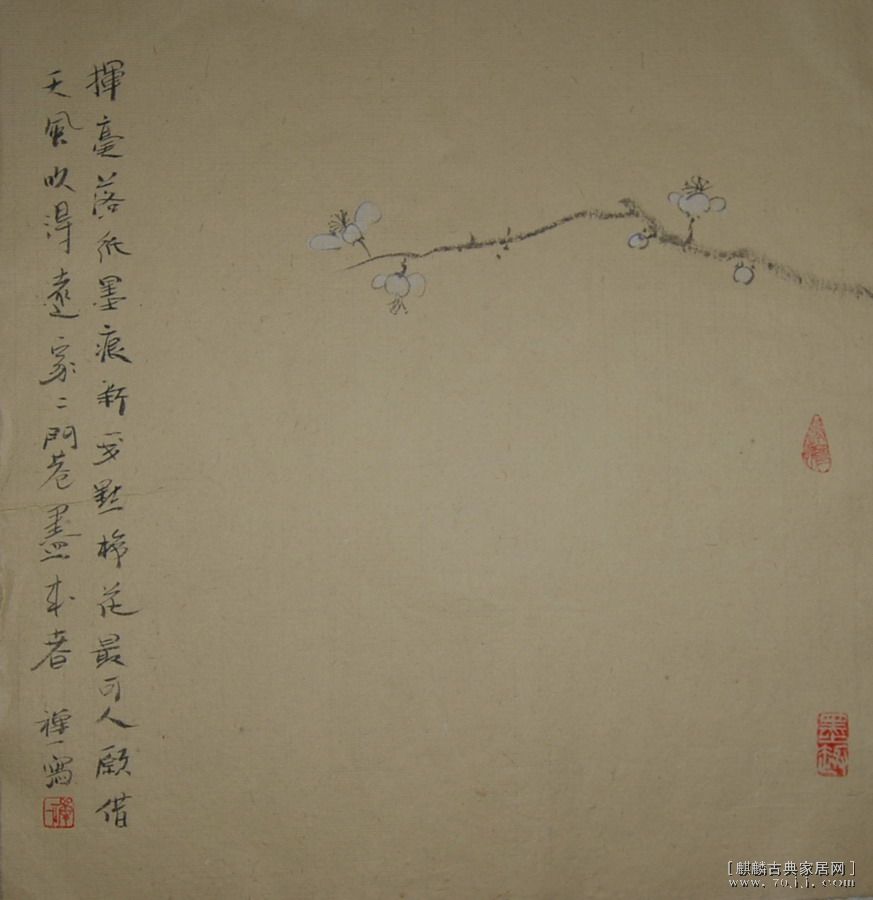 揮毫落紙墨痕新幾點梅花最可人願借
天風吹得遠家〻門巷盡成春 禪一寫
墨梅
[麒麟古典家居网]
www.7qjj.com